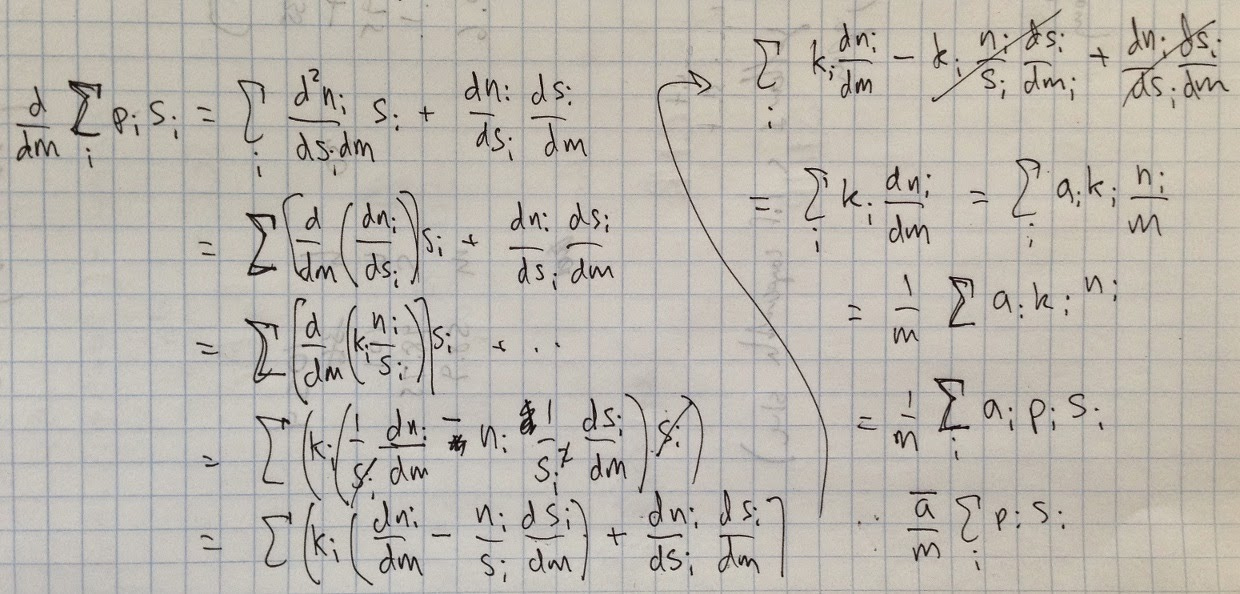 d/dm ∑_i p_i s_i = ∑_i d²n_i/(ds_i dm) s_i + dn_i/ds_i ds_i/dm
= ∑ [d/dm (dn_i/ds_i)] s_i + dn_i/ds_i ds_i/dm
= ∑ [d/dm (k_i n_i/s_i)] s_i + ...
= ∑ (k_i (1/s_i dn_i/dm - n_i 1/s_i² ds_i/dm) s_i)
= ∑ (k_i (dn_i/dm - n_i/s_i ds_i/dm) + dn_i/ds_i ds_i/dm]
∑_i k_i dn_i/dm - k_i n_i/s_i ds_i/dm_i + dn_i/ds_i ds_i/dm
= ∑_i k_i dn_i/dm = ∑_i a_i k_i n_i/m
= 1/m ∑ a_i k_i n_i
= 1/m ∑_i a_i p_i s_i
∴ ā/m ∑_i p_i s_i